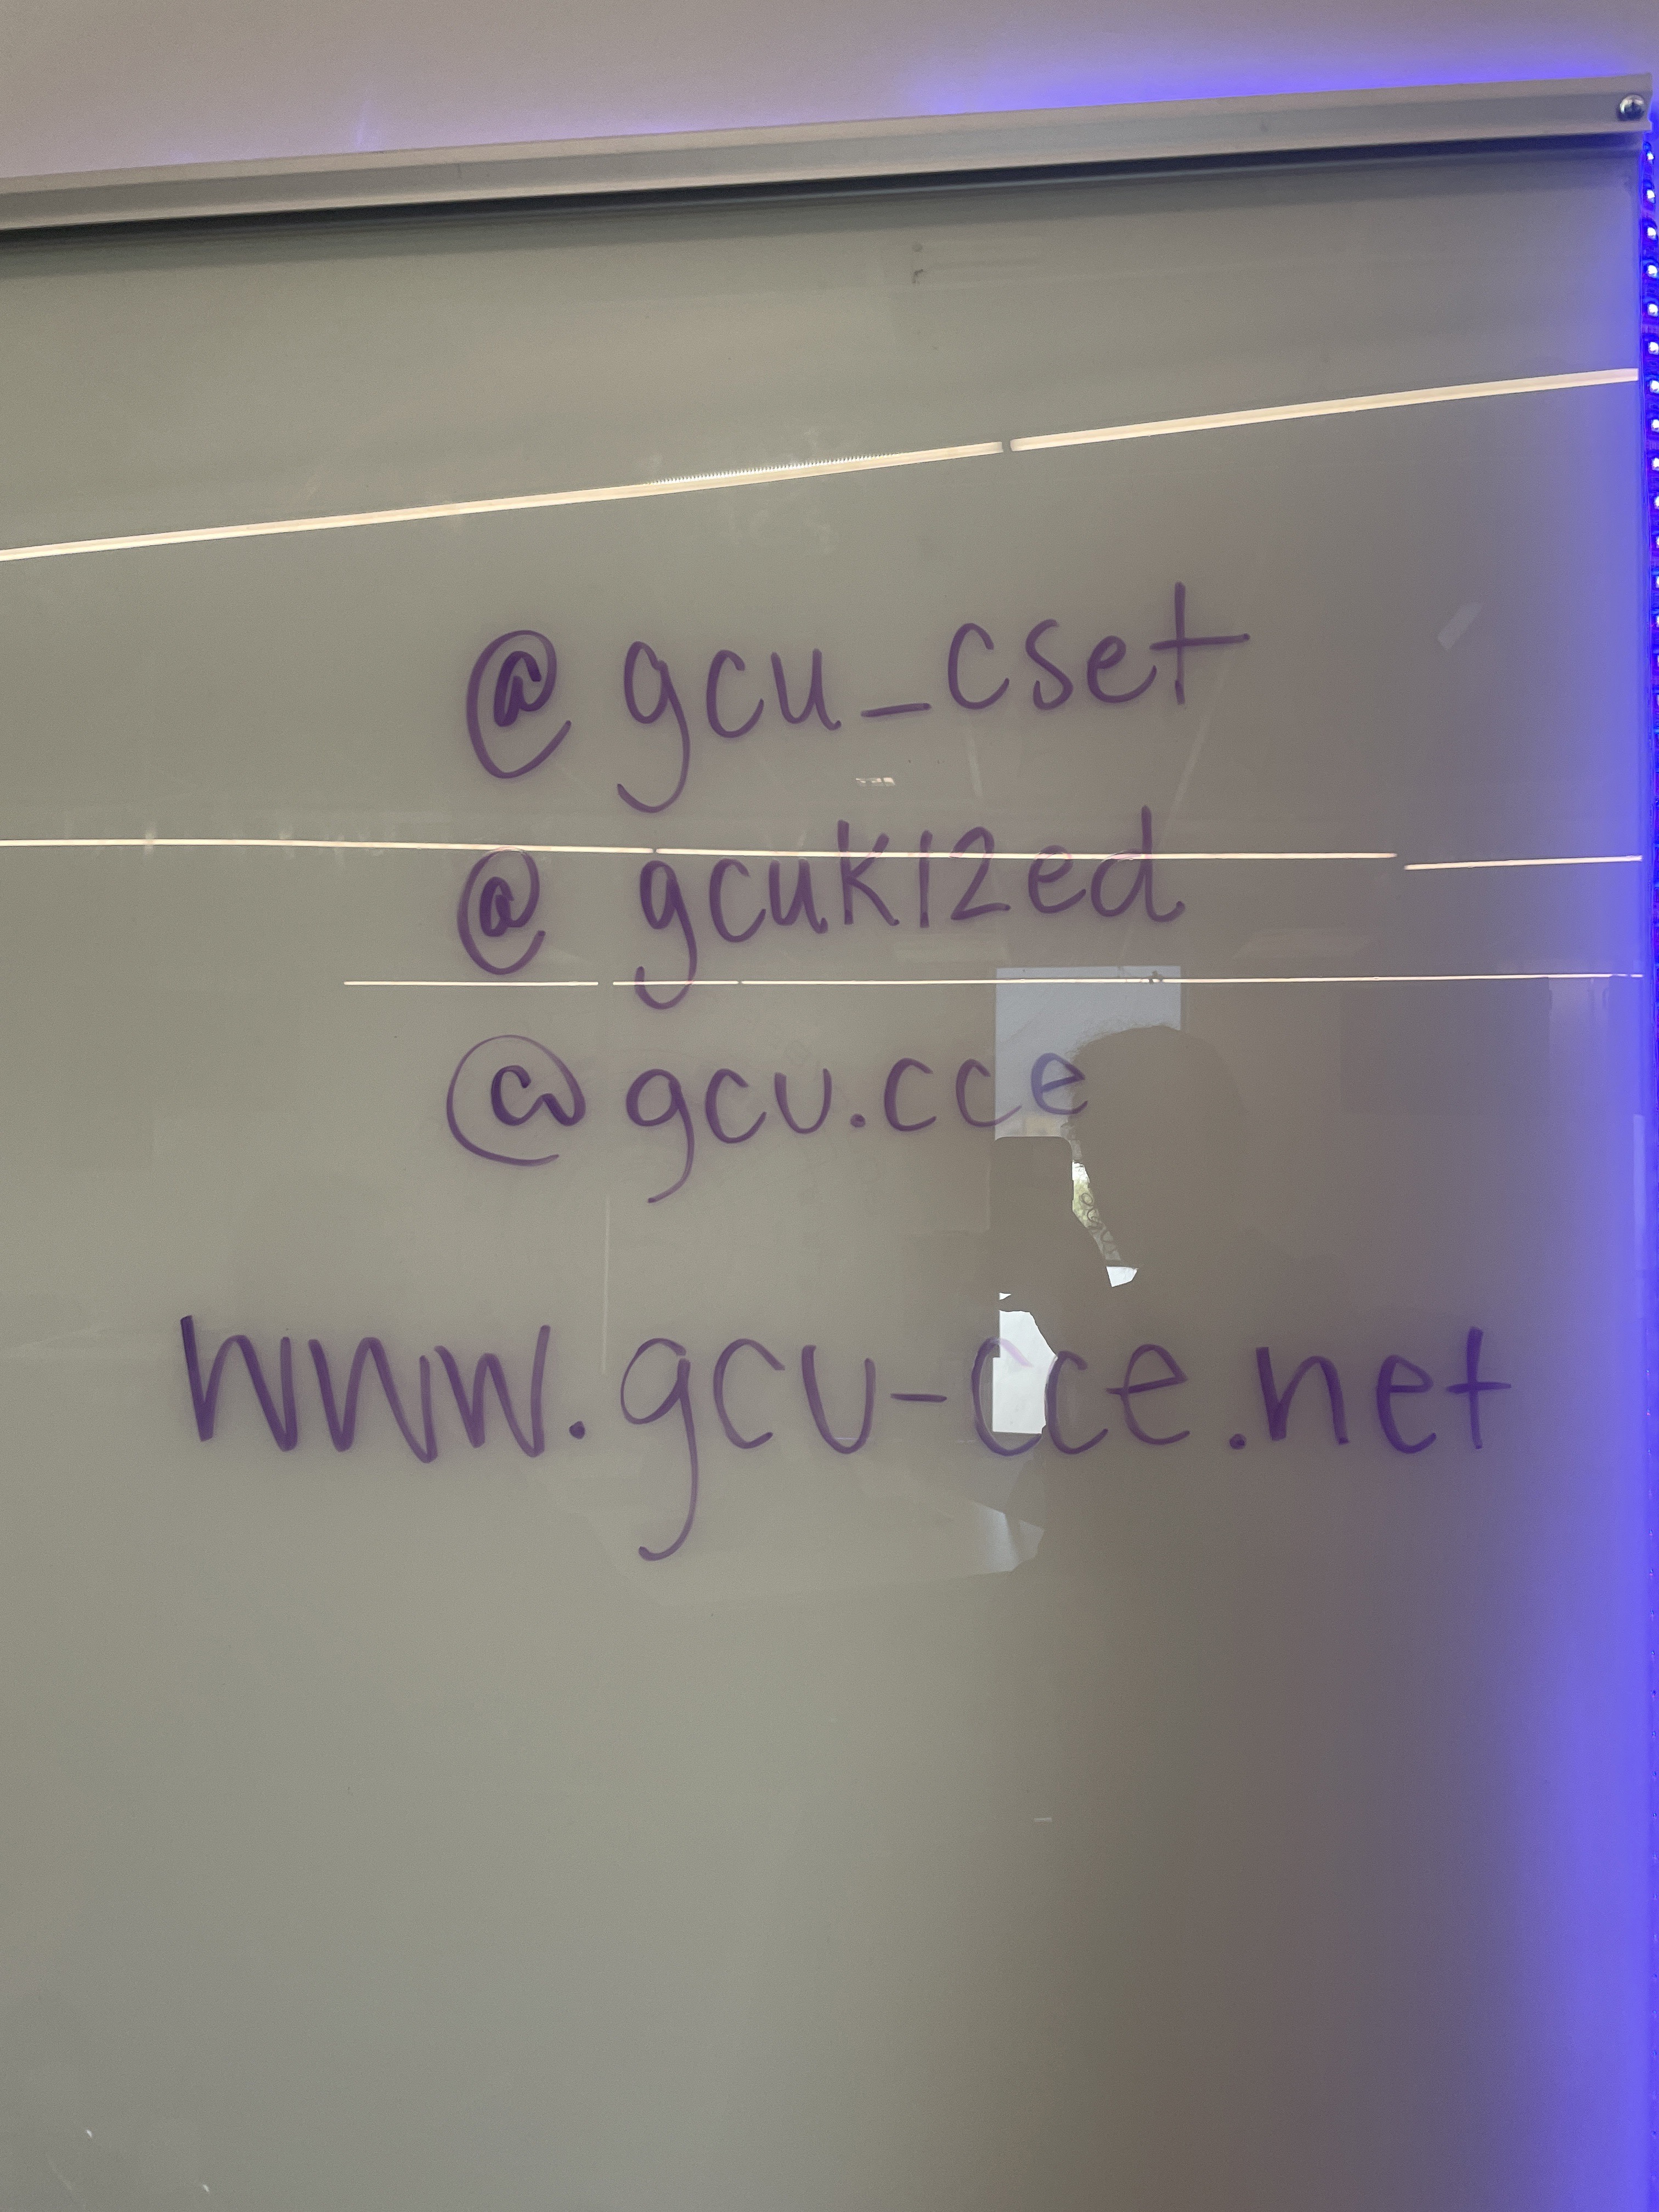 @gcu_cset
@gcuk12ed
@gcu.cce
www.gcu-cce.net